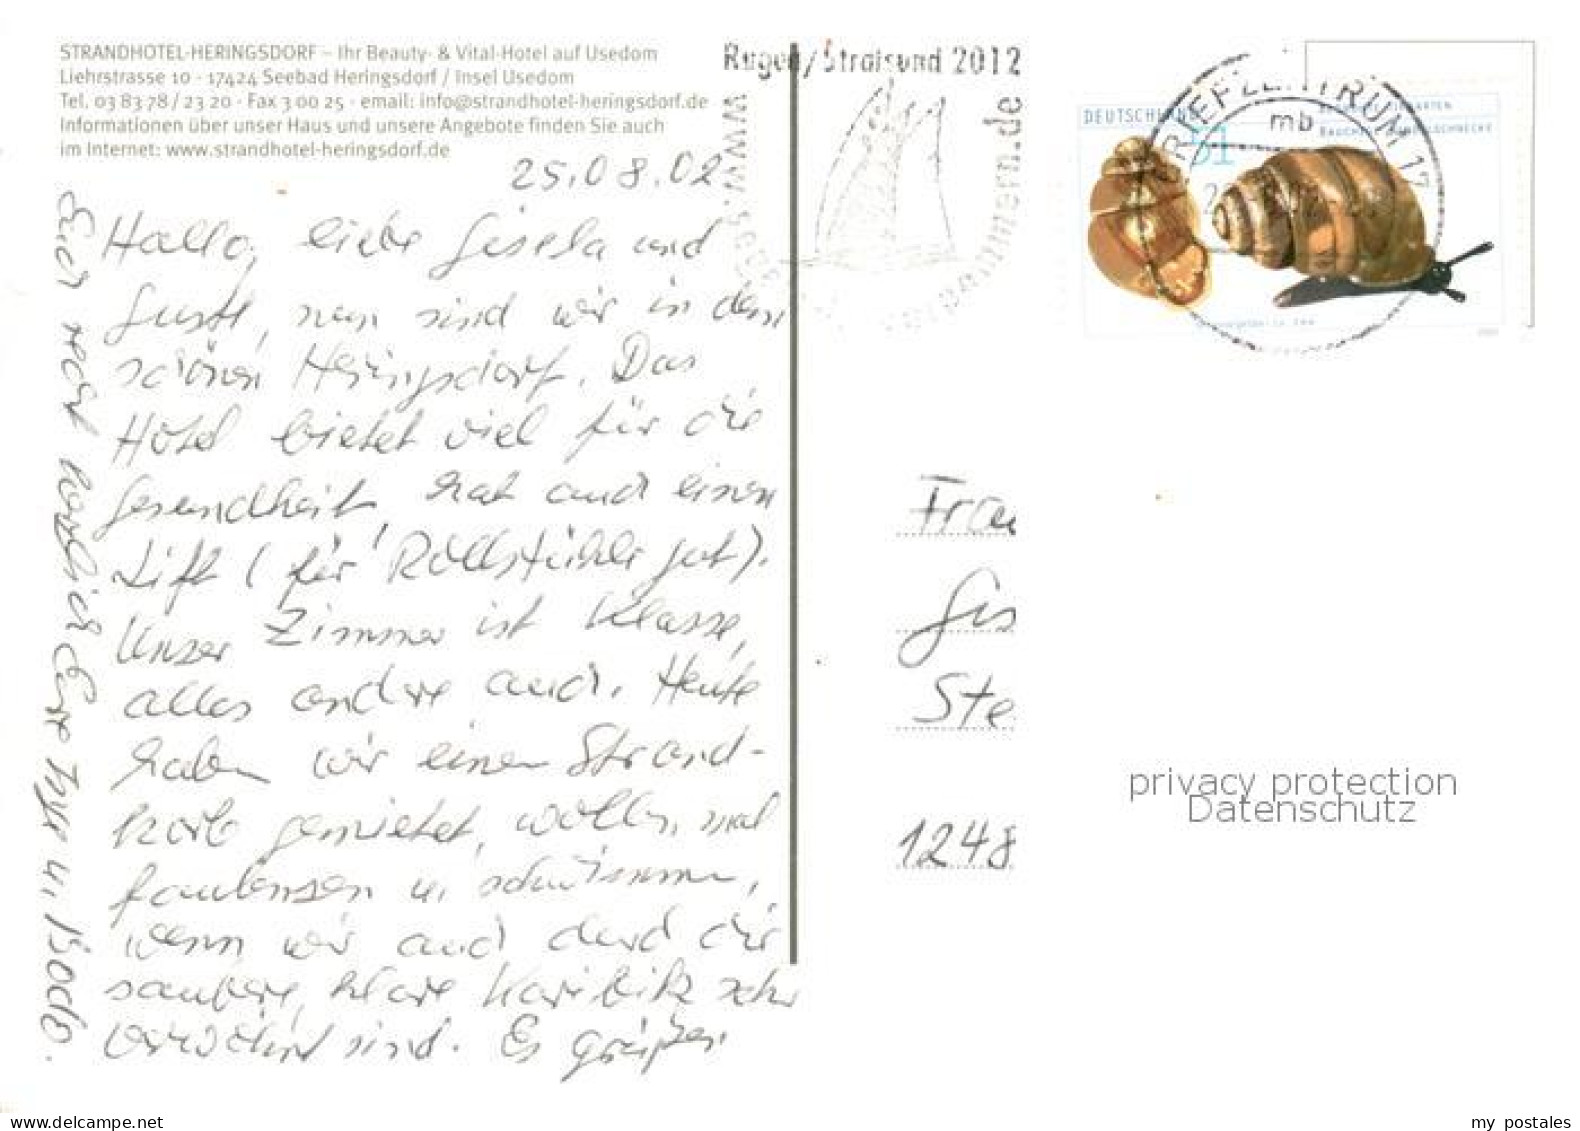 STRANDHOTEL-HERINGSDORF – Ihr Beauty- & Vital-Hotel auf Usedom
Liehrstrasse 10 - 17424 Seebad Heringsdorf / Insel Usedom
Tel. 03 83 78 / 23 20 - Fax 3 00 25 - email: info@strandhotel-heringsdorf.de
Informationen über unser Haus und unsere Angebote finden Sie auch
im Internet: www.strandhotel-heringsdorf.de
25.08.02
Hallo, liebe Gisela und
Gustl, nun sind wir in dem
schönen Heringsdorf. Das
Hotel bietet viel für die
Gesundheit, hat auch einen
Lift (für Rollstühle gut).
Unser Zimmer ist Klasse,
alles andre auch. Heute
haben wir einen Strand-
korb gemietet, wollen mal
faulenzen u. schwimmen,
wenn wir auch durch die
saubere, klare Karibik sehr
verwöhnt sind. Es grüßen
Euch recht herzlich Eure
u. Bodo.
Rügen/Stralsund 2012
www.
.de
DEUTSCHLAND
51
BRIEFZENTRUM 17
mb
Frau
Gis
Ste
1248
privacy protection
Datenschutz
delcampe.net
my postales